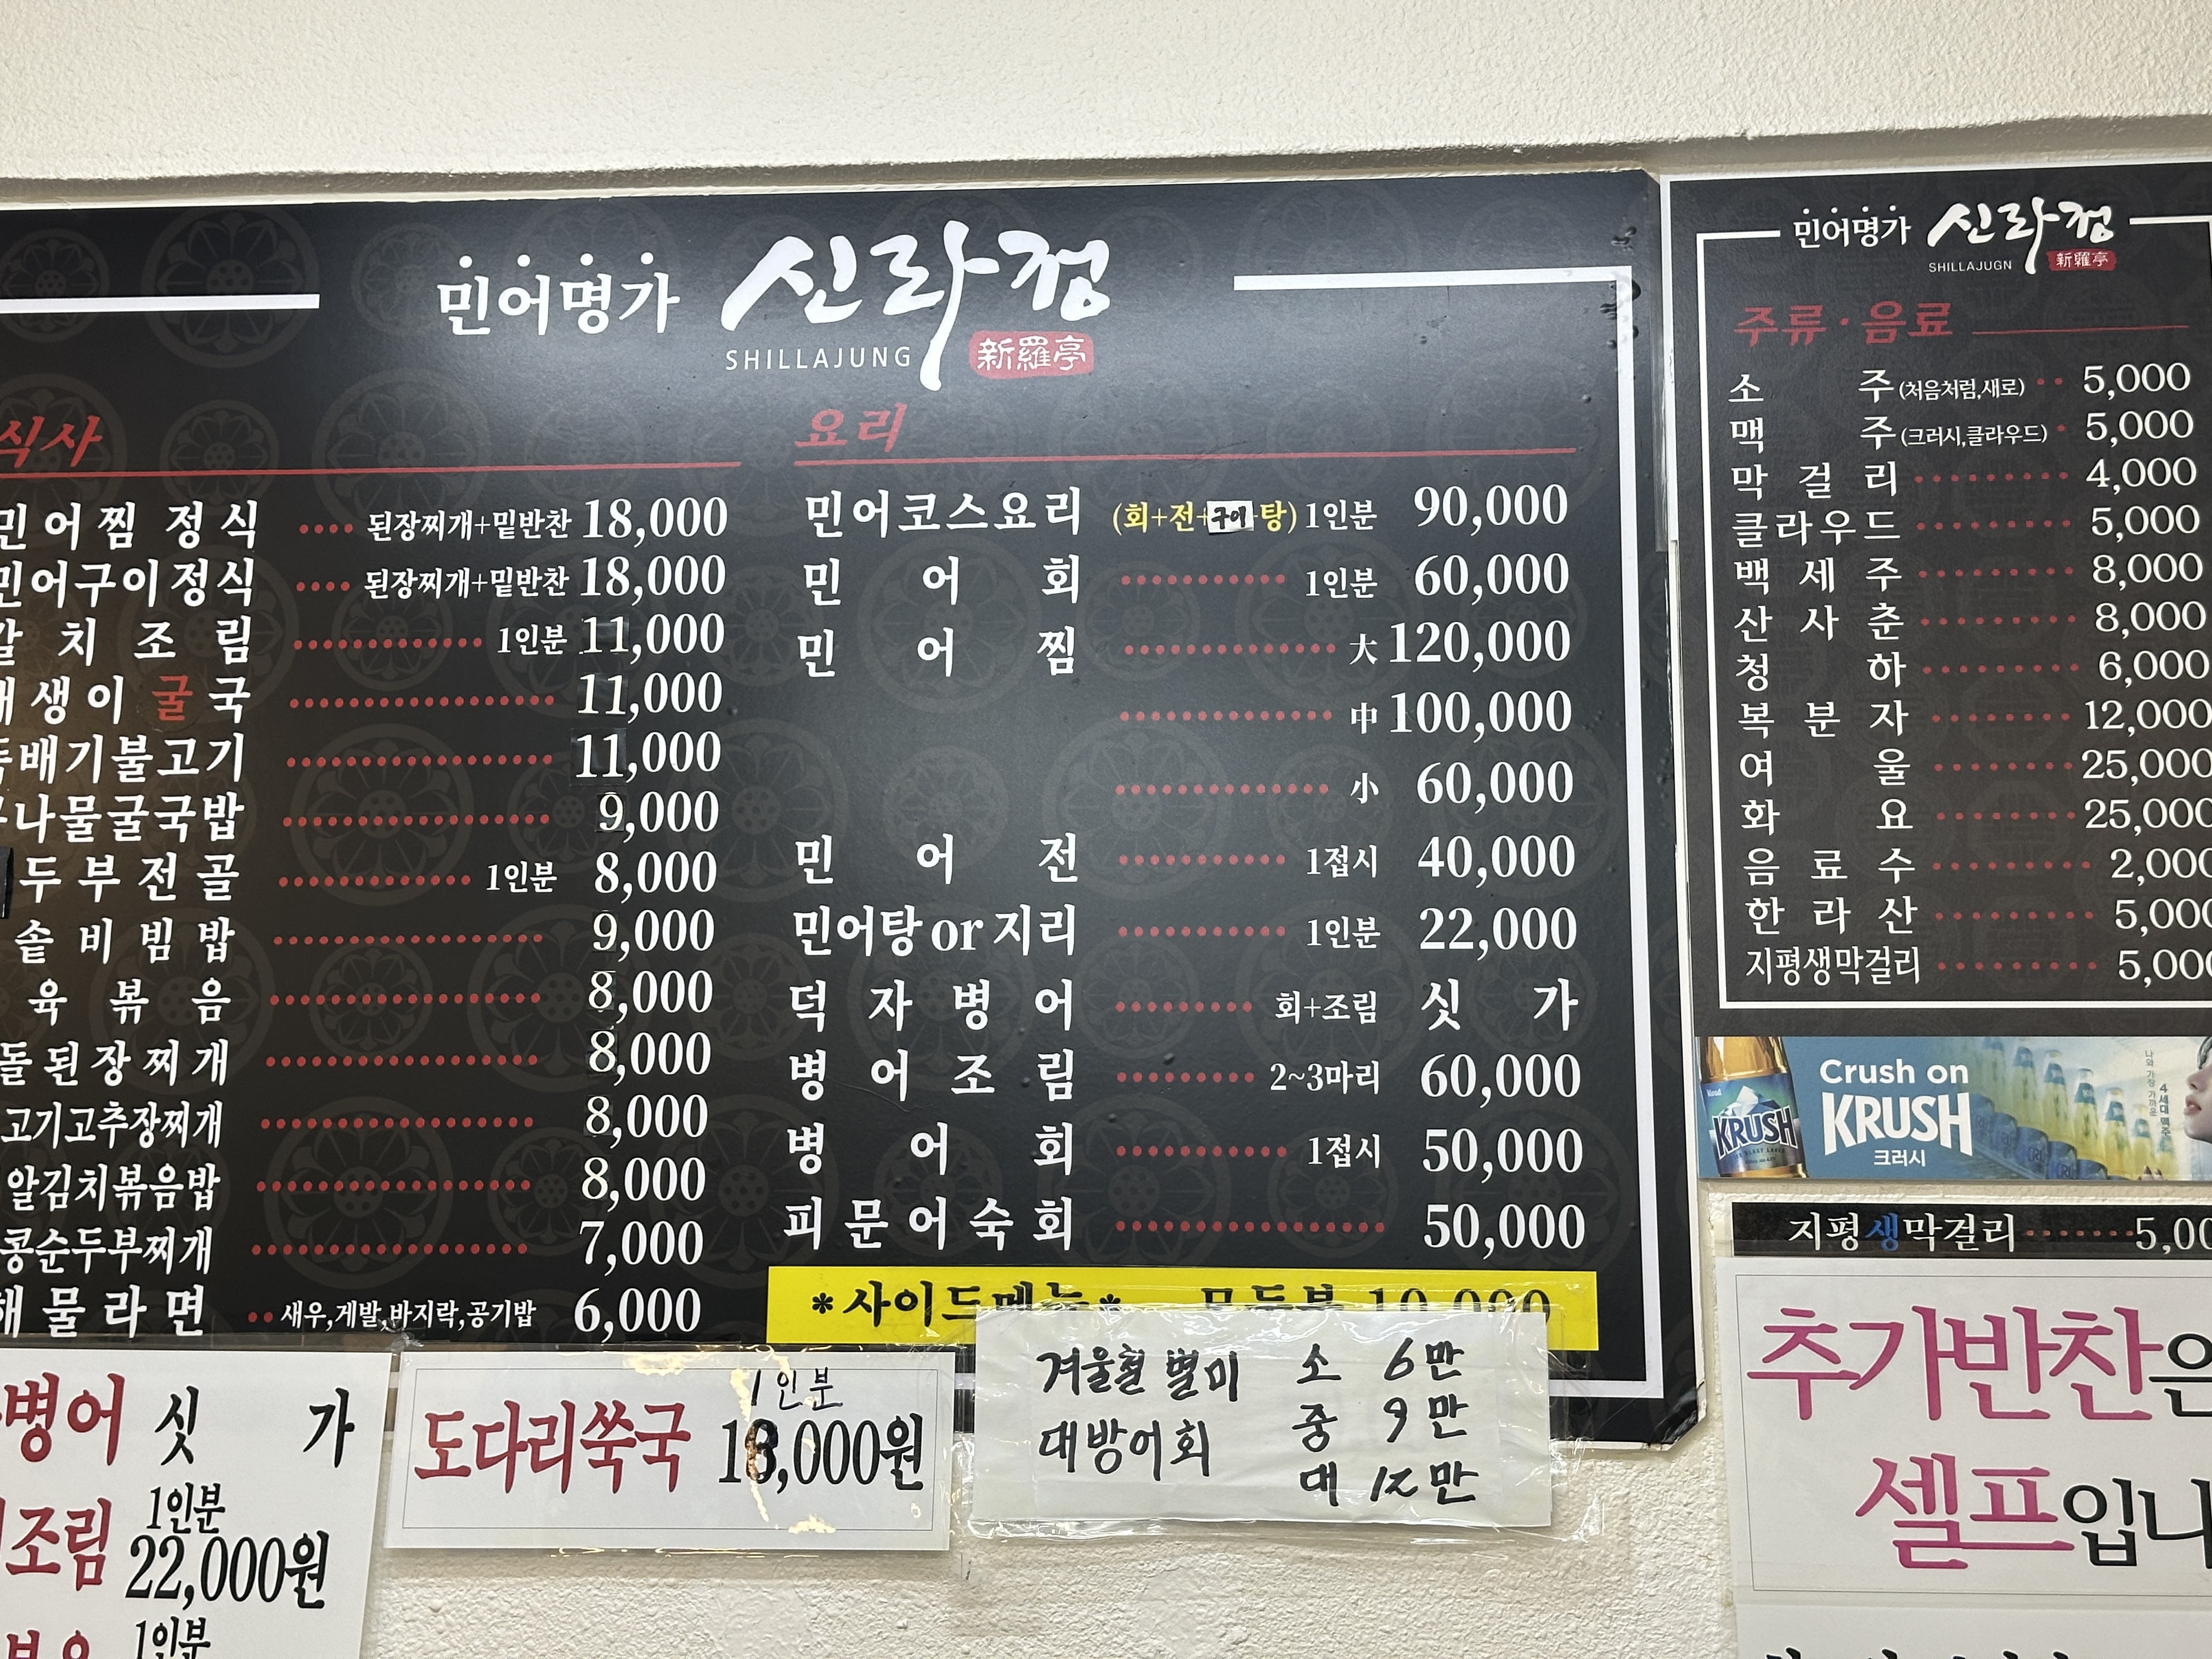 민어명가 신라정
SHILLAJUNG 新羅亭
식사
민어찜 정식 된장찌개+밑반찬 18,000
민어구이정식 된장찌개+밑반찬 18,000
갈치조림 1인분 11,000
생이 굴국 11,000
배기불고기 11,000
나물굴국밥 9,000
두부전골 1인분 8,000
솥비빔밥 9,000
육볶음 8,000
돌된장찌개 8,000
고기고추장찌개 8,000
알김치볶음밥 8,000
콩순두부찌개 7,000
해물라면 새우,게발,바지락,공기밥 6,000
요리
민어코스요리 (회+전+구이+탕) 1인분 90,000
민어회 1인분 60,000
민어찜 大 120,000
中 100,000
小 60,000
민어전 1접시 40,000
민어탕 or 지리 1인분 22,000
덕자병어 회+조림 싯가
병어조림 2~3마리 60,000
병어회 1접시 50,000
피문어숙회 50,000
*사이드메뉴* 모두부 10,000
병어 싯가
조림 1인분 22,000원
1인분
도다리쑥국 1인분 18,000원
겨울철 별미 소 6만
대방어회 중 9만
대 12만
민어명가 신라정
SHILLAJUGN 新羅亭
주류·음료
소주(처음처럼,새로) 5,000
맥주(크러시,클라우드) 5,000
막걸리 4,000
클라우드 5,000
백세주 8,000
산사춘 8,000
청하 6,000
복분자 12,000
여울 25,000
화요 25,000
음료수 2,000
한라산 5,000
지평생막걸리 5,000
Crush on
KRUSH
크러시
KRUSH
4세대 맥주
지평생막걸리 5,00
추가반찬은
셀프입니